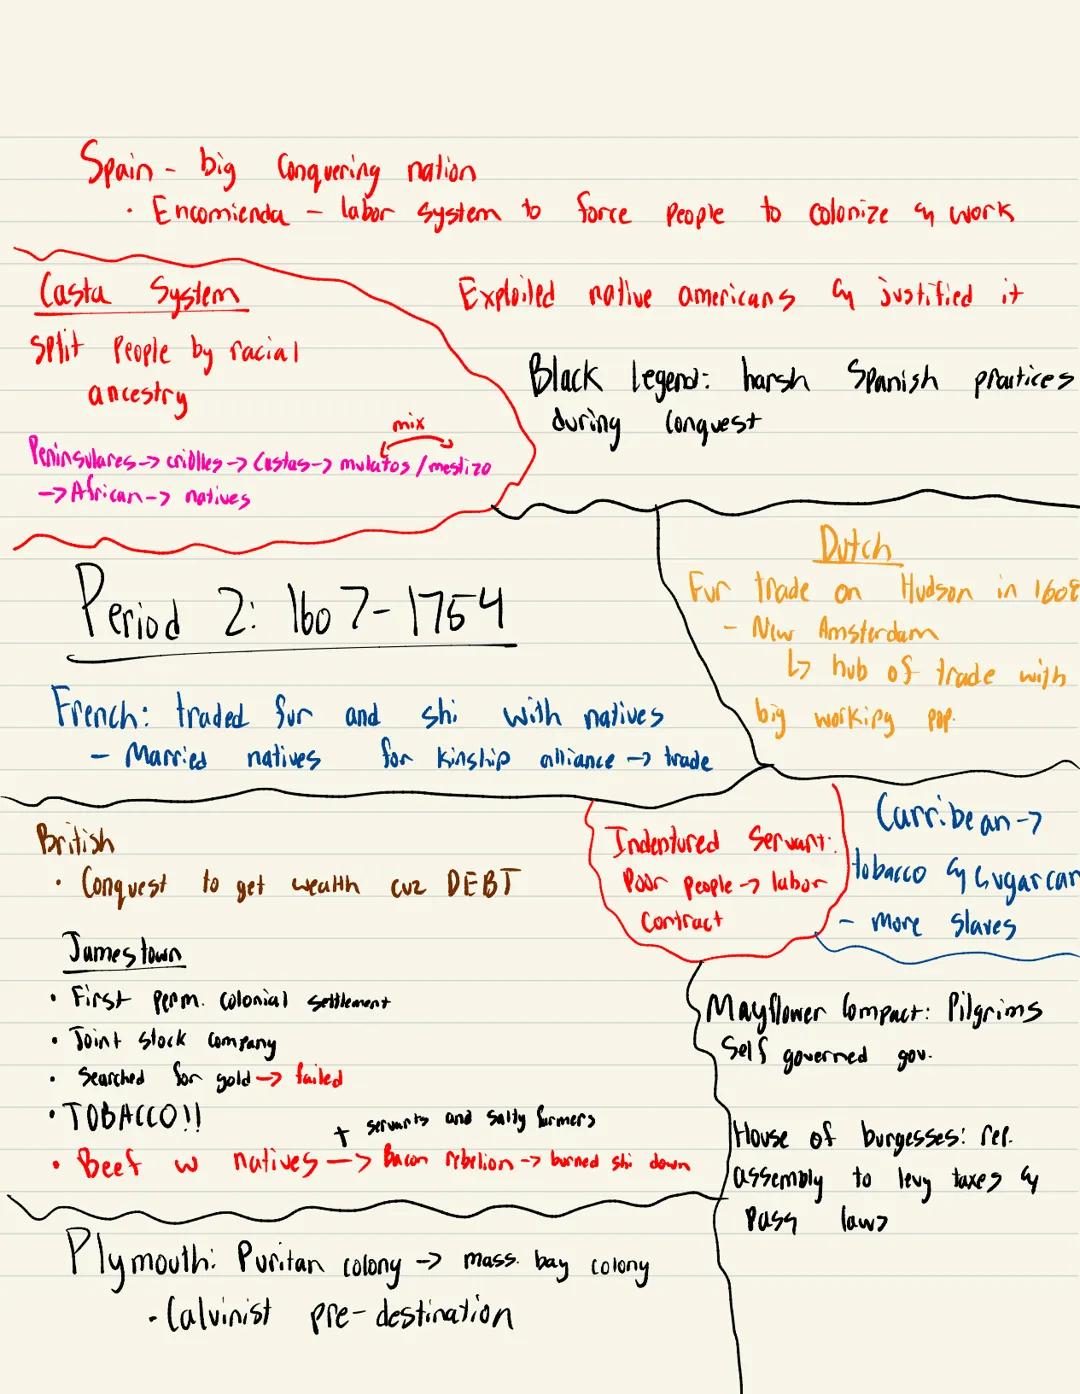 Spain - big Conquering nation
· Encomienda - labor system to force people to colonize & work
Casta System
split People by racial
ancestry
mix
Peninsulares -> criolles -> Castas -> mulatos / mestizo
-> African -> natives
Exploiled native americans & justified it
Black legend: harsh Spanish practices
during conquest
Period 2: 1607-1754
Dutch
Fur trade on Hudson in 1608
- New Amsterdam
↳ hub of trade with
big working pop.
French: traded fur and shi with natives
- Married natives for kinship alliance -> trade
British
· Conquest to get wealth cuz DEBT
Indentured Servant:
Poor people -> labor
Contract
Carribean ->
tobacco & Sugarcan
- more slaves
Jamestown
· First perm. colonial settlement
· Joint stock company
· Searched for gold -> failed
· TOBACCO!!
+ servants and salty farmers
· Beef w natives -> Bacon rebelion -> burned shi down
Mayflower Compact: Pilgrims
Self governed gov.
House of burgesses: rep.
assembly to levy taxes &
Pass laws
Plymouth: Puritan colony -> mass. bay colony
· Calvinist pre-destination